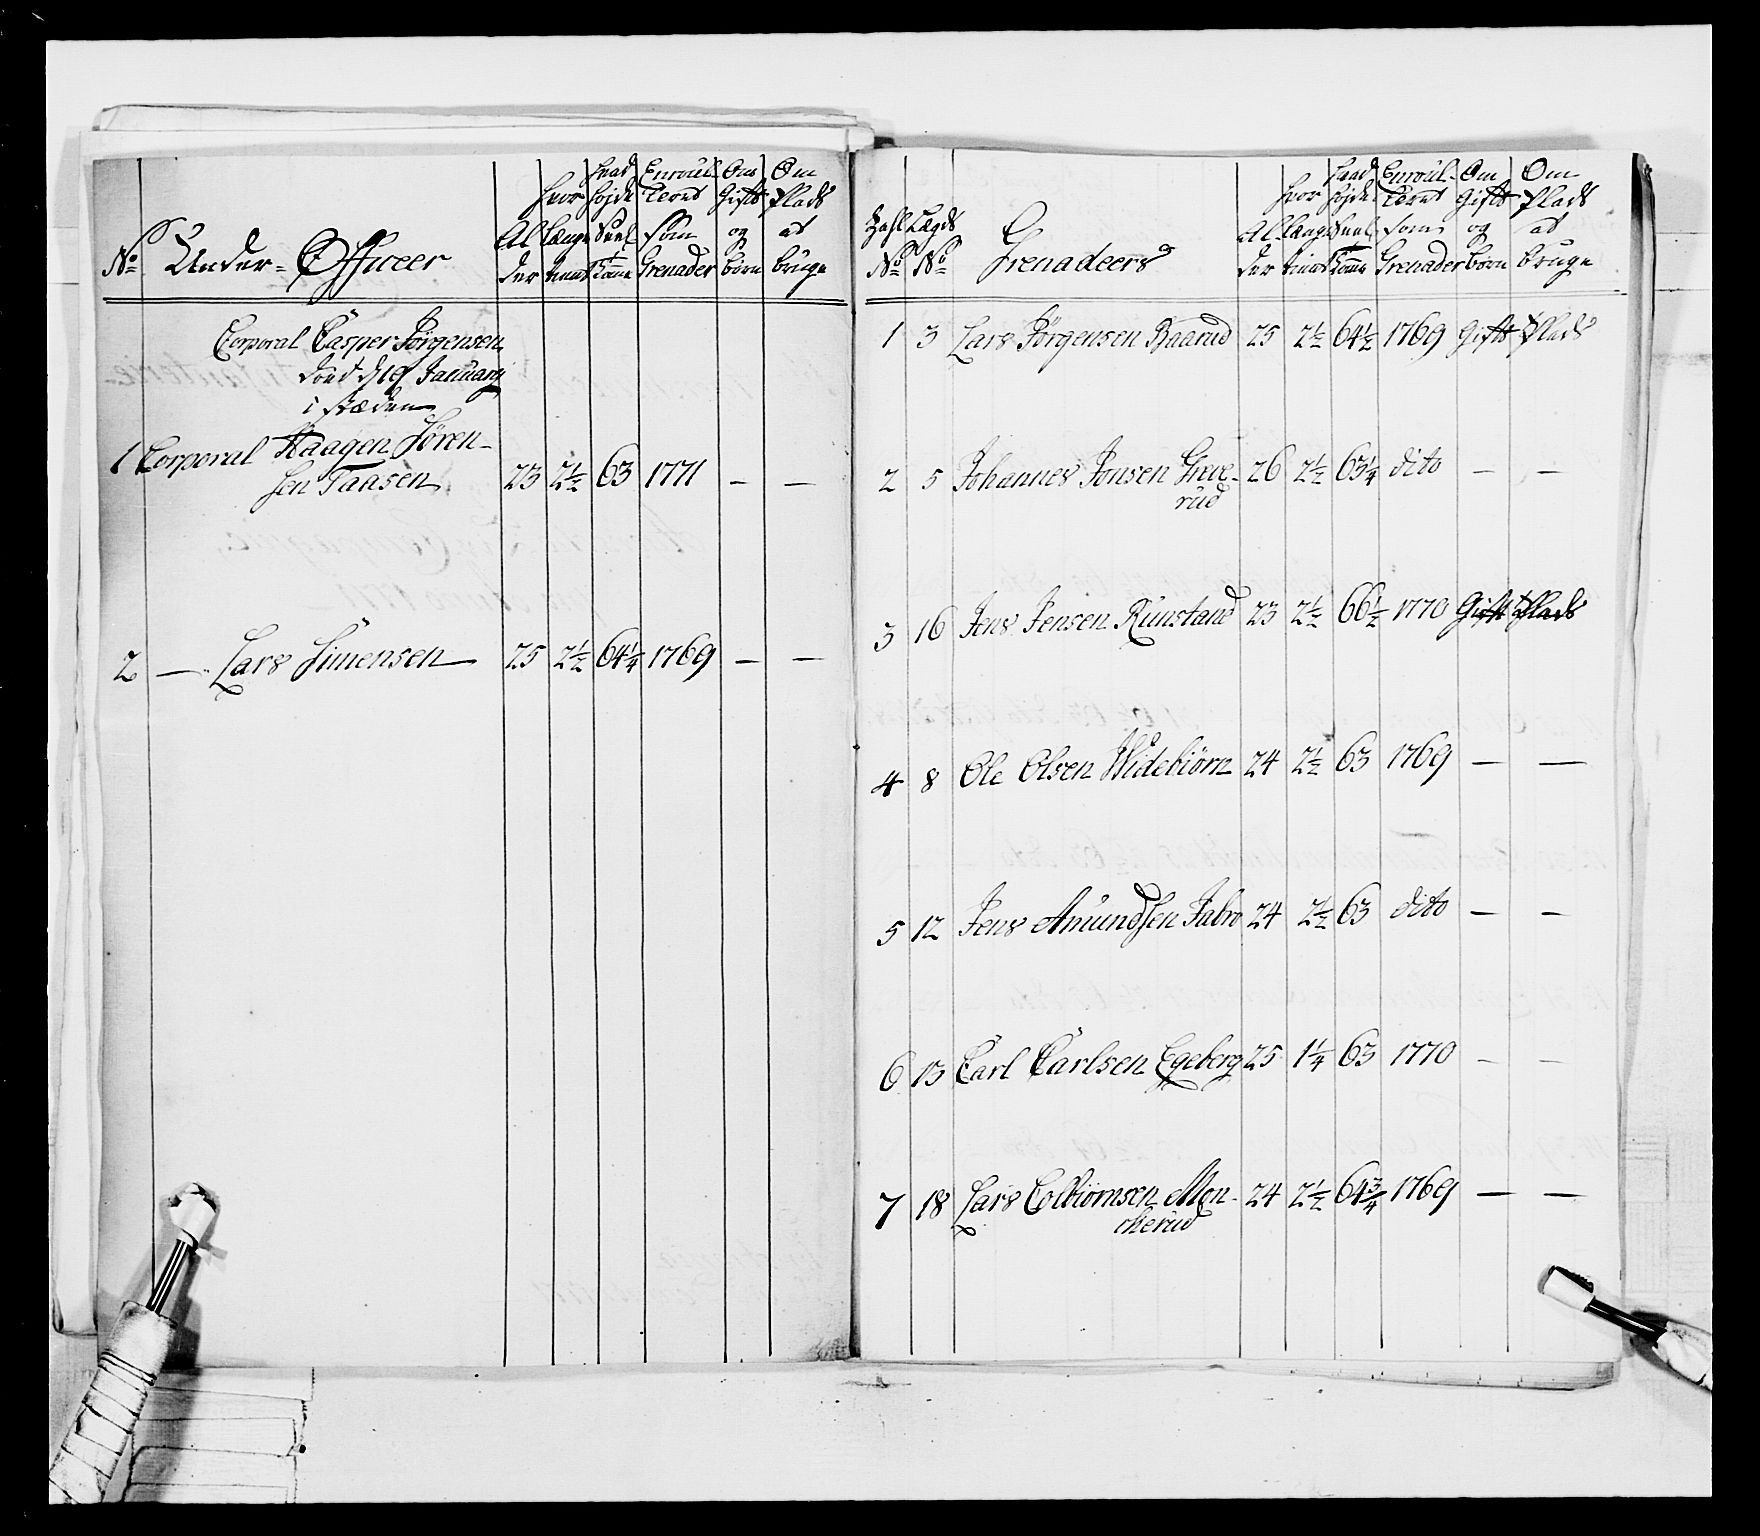 No Under-Officeer
Al
der
hvor
længe
tient
hvad
højde
Enroul-
leret
som
Grenader
Om
Gift
og
børn
Om
Plads
at
bruge
Corporal Casper Jørgensen
død d 19 January
i stæden
1 Corporal Haagen Sören-
sen Taasen 23 2½ 63 1771 — —
2 — Lars Simensen 25 2½ 64¼ 1769 — —
Zahl
No
Lægds
No
Grenadeers
Al-
der
hvor
længe
tient
hvad
højde
Enroul-
leret
som
Grenader
Om
Gift
og
børn
Om
Plads
at
bruge
1 3 Lars Jørgensen Baarud 25 2½ 64½ 1769 Gift Plads
2 5 Johannes Jonsen Grue-
rud 26 2½ 63¼ dito — —
3 16 Jens Jensen Runstand 23 2½ 66½ 1770 Gift Plads
4 8 Ole Olsen Widebiörn 24 2½ 63 1769 — —
5 12 Jens Amundsen Jabro 24 2½ 63 dito — —
6 13 Carl Carlsen Egeberg 25 1¼ 63 1770 — —
7 18 Lars Colbiornsen Mon-
cherud 24 2½ 64¾ 1769 — —